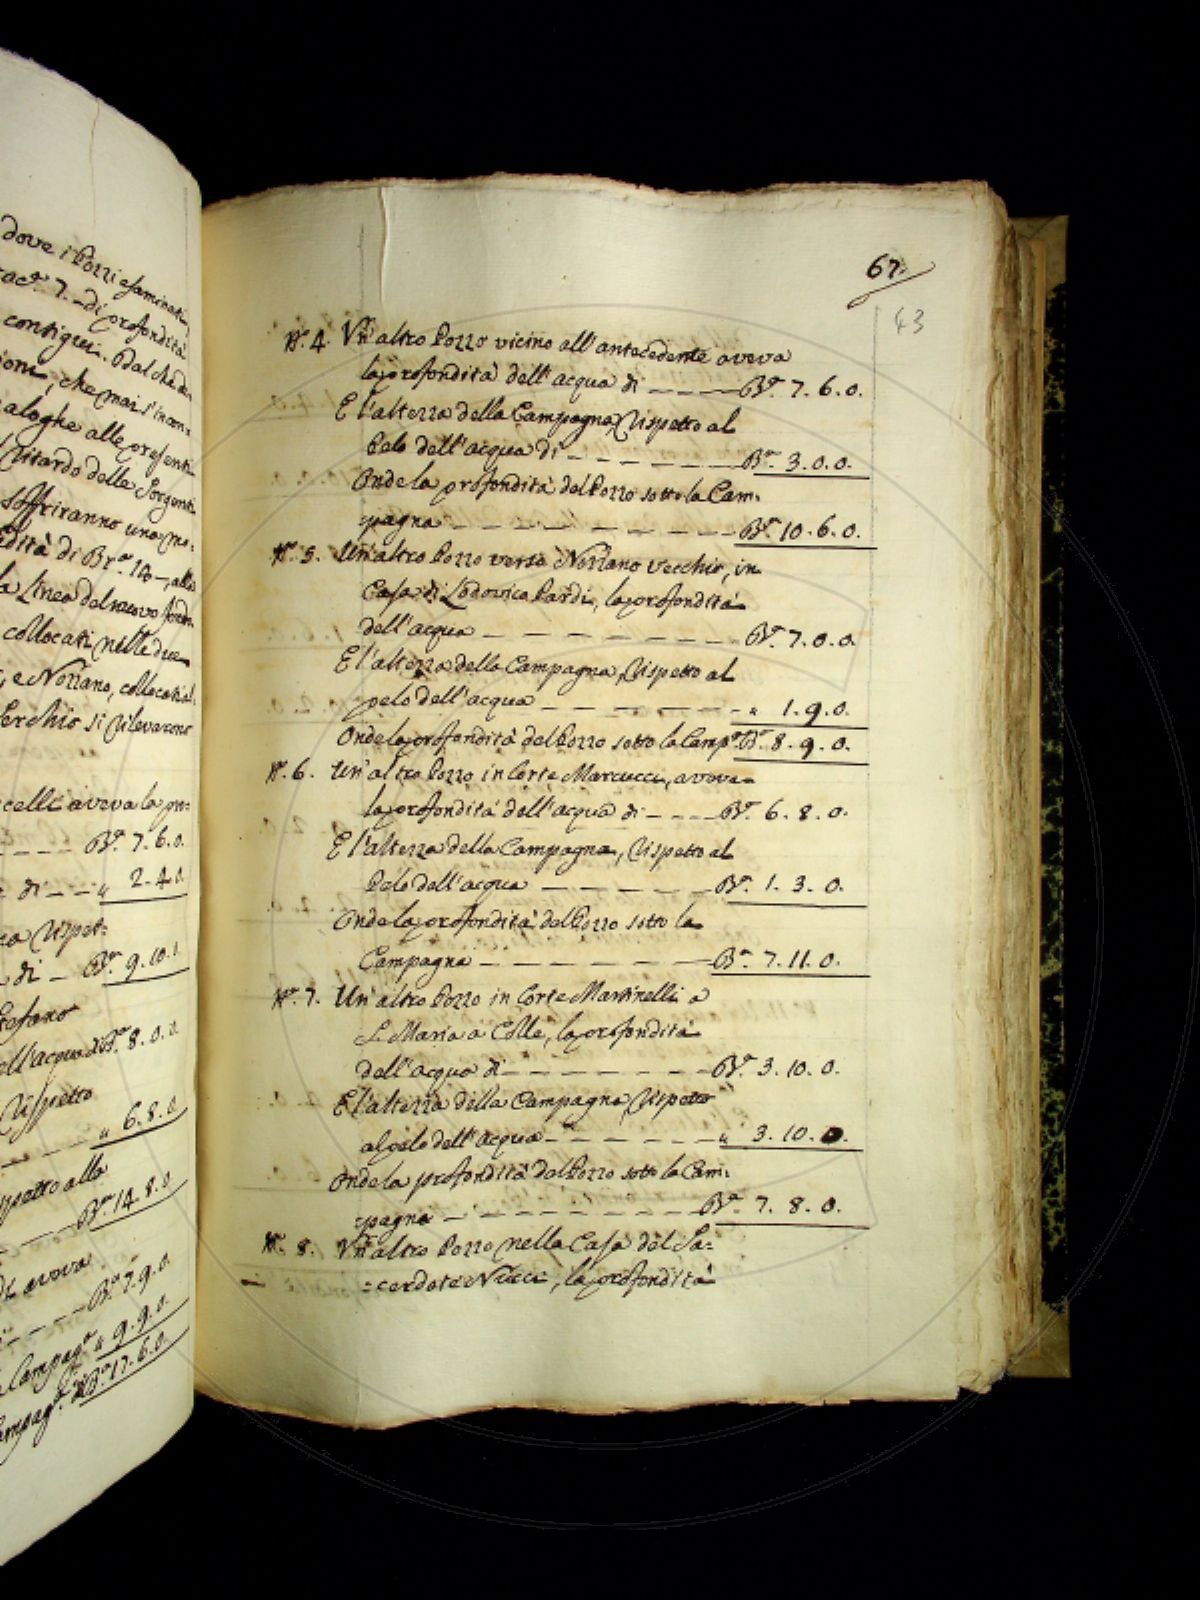 dove i Pozzi esaminati,
7. - di profondità
contigui. Dal che de-
che mai s'inan-
aloghe alle presenti
ritardo delle Sorgenti
soffriranno una mo-
di Br.ᵃ 14 -, alla
la linea del nuovo fondo
collocati nelle due
e Nozzano, collocati al
Serchio si rilevarono
celli aveva la pro-
Bᵃ. 7. 6. 0.
di - - „ 2. 4. 0.
rispet-
di - Bᵃ. 9. 10. 1.
Stefano
ell'acqua di Bᵃ. 8. 0. 0.
rispetto
„ 6. 8. 0.
rispetto alla
Bᵃ. 14. 8. 0.
di aveva
Bᵃ. 7. 9. 0.
Campagᵃ „ 9. 9. 0.
Campagᵃ. di Bᵃ. 17. 6. 0.
67.
43
Nº. 4. Un'altro Pozzo vicino all'antecedente aveva
la profondità dell'acqua di - - - Bᵃ. 7. 6. 0.
E l'altezza della Campagna, rispetto al
Pelo dell'acqua di - - - - - - Bᵃ. 3. 0. 0.
Onde la profondità del Pozzo sotto la Cam-
pagna - - - - - - - - Bᵃ. 10. 6. 0.
Nº. 5. Un'altro Pozzo verso Nozzano Vecchio, in
Casa di Lodovico Pardi, la profondità
dell'acqua - - - - - - - Bᵃ. 7. 0. 0.
E l'altezza della Campagna, rispetto al
pelo dell'acqua - - - - - - - „ 1. 9. 0.
Onde la profondità del Pozzo sotto la Campᵃ. Bᵃ. 8. 9. 0.
Nº. 6. Un'altro Pozzo in Corte Marcucci, aveva
la profondità dell'acqua di - - - Bᵃ. 6. 8. 0.
E l'altezza della Campagna, rispetto al
Pelo dell'acqua - - - - - - Bᵃ. 1. 3. 0.
Onde la profondità del Pozzo sotto la
Campagna - - - - - - - Bᵃ. 7. 11. 0.
Nº. 7. Un'altro Pozzo in Corte Martinelli a
S. Maria a Colle, la profondità
dell'acqua di - - - - - - Bᵃ. 3. 10. 0.
E l'altezza della Campagna, rispetto
al pelo dell'acqua - - - - - - „ 3. 10. 0.
Onde la profondità del Pozzo sotto la Cam-
pagna - - - - - - - - Bᵃ. 7. 8. 0.
Nº. 8. Un'altro Pozzo nella Casa del Sa=
=cerdote Nucci, la profondità